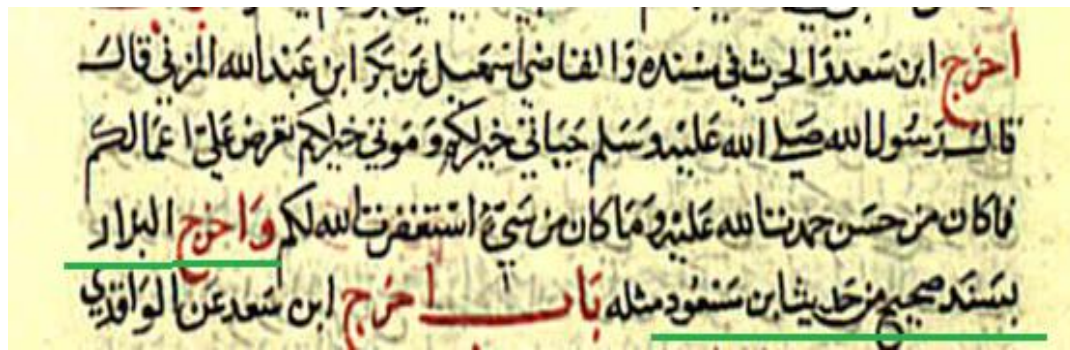 اخرج ابن سعد والحرث في مسنده والقاضي اسمعيل عن بكر ابن عبد الله المزني قال
قال رسول الله صلى الله عليه وسلم حياتي خير لكم وموتي خير لكم تعرض علي اعمالكم
فما كان من حسن حمدت الله عليه وما كان من سيئ استغفرت الله لكم واخرج البزار
بسند صحيح من حديث ابن مسعود مثله باب اخرج ابن سعد عن الواقدي